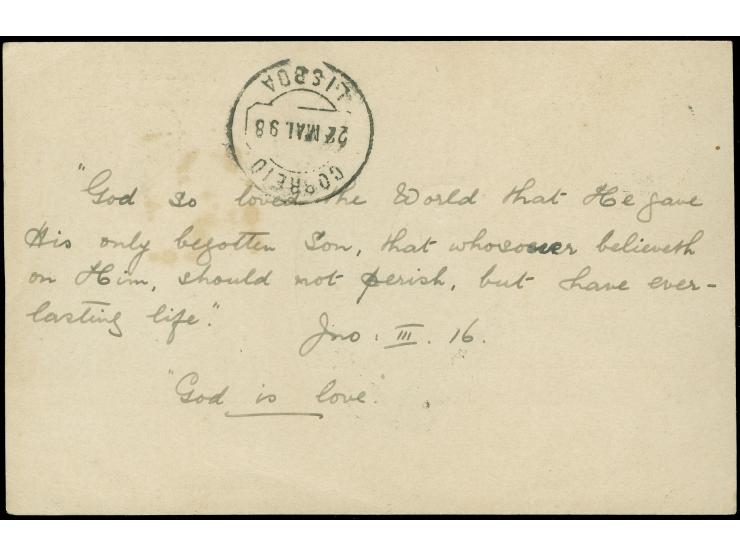 LISBOA
27 MAI. 98
CORREIO
"God so loved the World that He gave
His only begotten Son, that whosoever believeth
on Him, should not perish, but have ever-
lasting life".
Jno: III. 16.
"God is love".